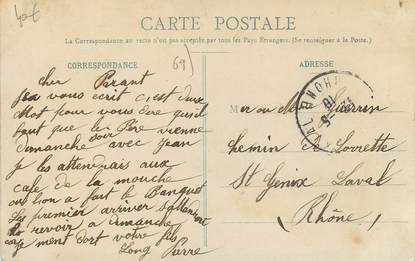 CARTE POSTALE
La Correspondance au recto n'est pas acceptée par tous les Pays Étrangers. (Se renseigner à la Poste.)
CORRESPONDANCE
ADRESSE
69
cher Parant
vous écrit c'est deux
Mot pour vous dire qu'il
faut que le Père vienne
soir
dimanche avec Jean
je les attendrais aux
café de la mouche
lion a fait le Banquet
premier arriver
revoir a dimanche
votre fils
Long Pierre
M
Guerrin
chemin Lorrette
St Genix Laval
Rhône